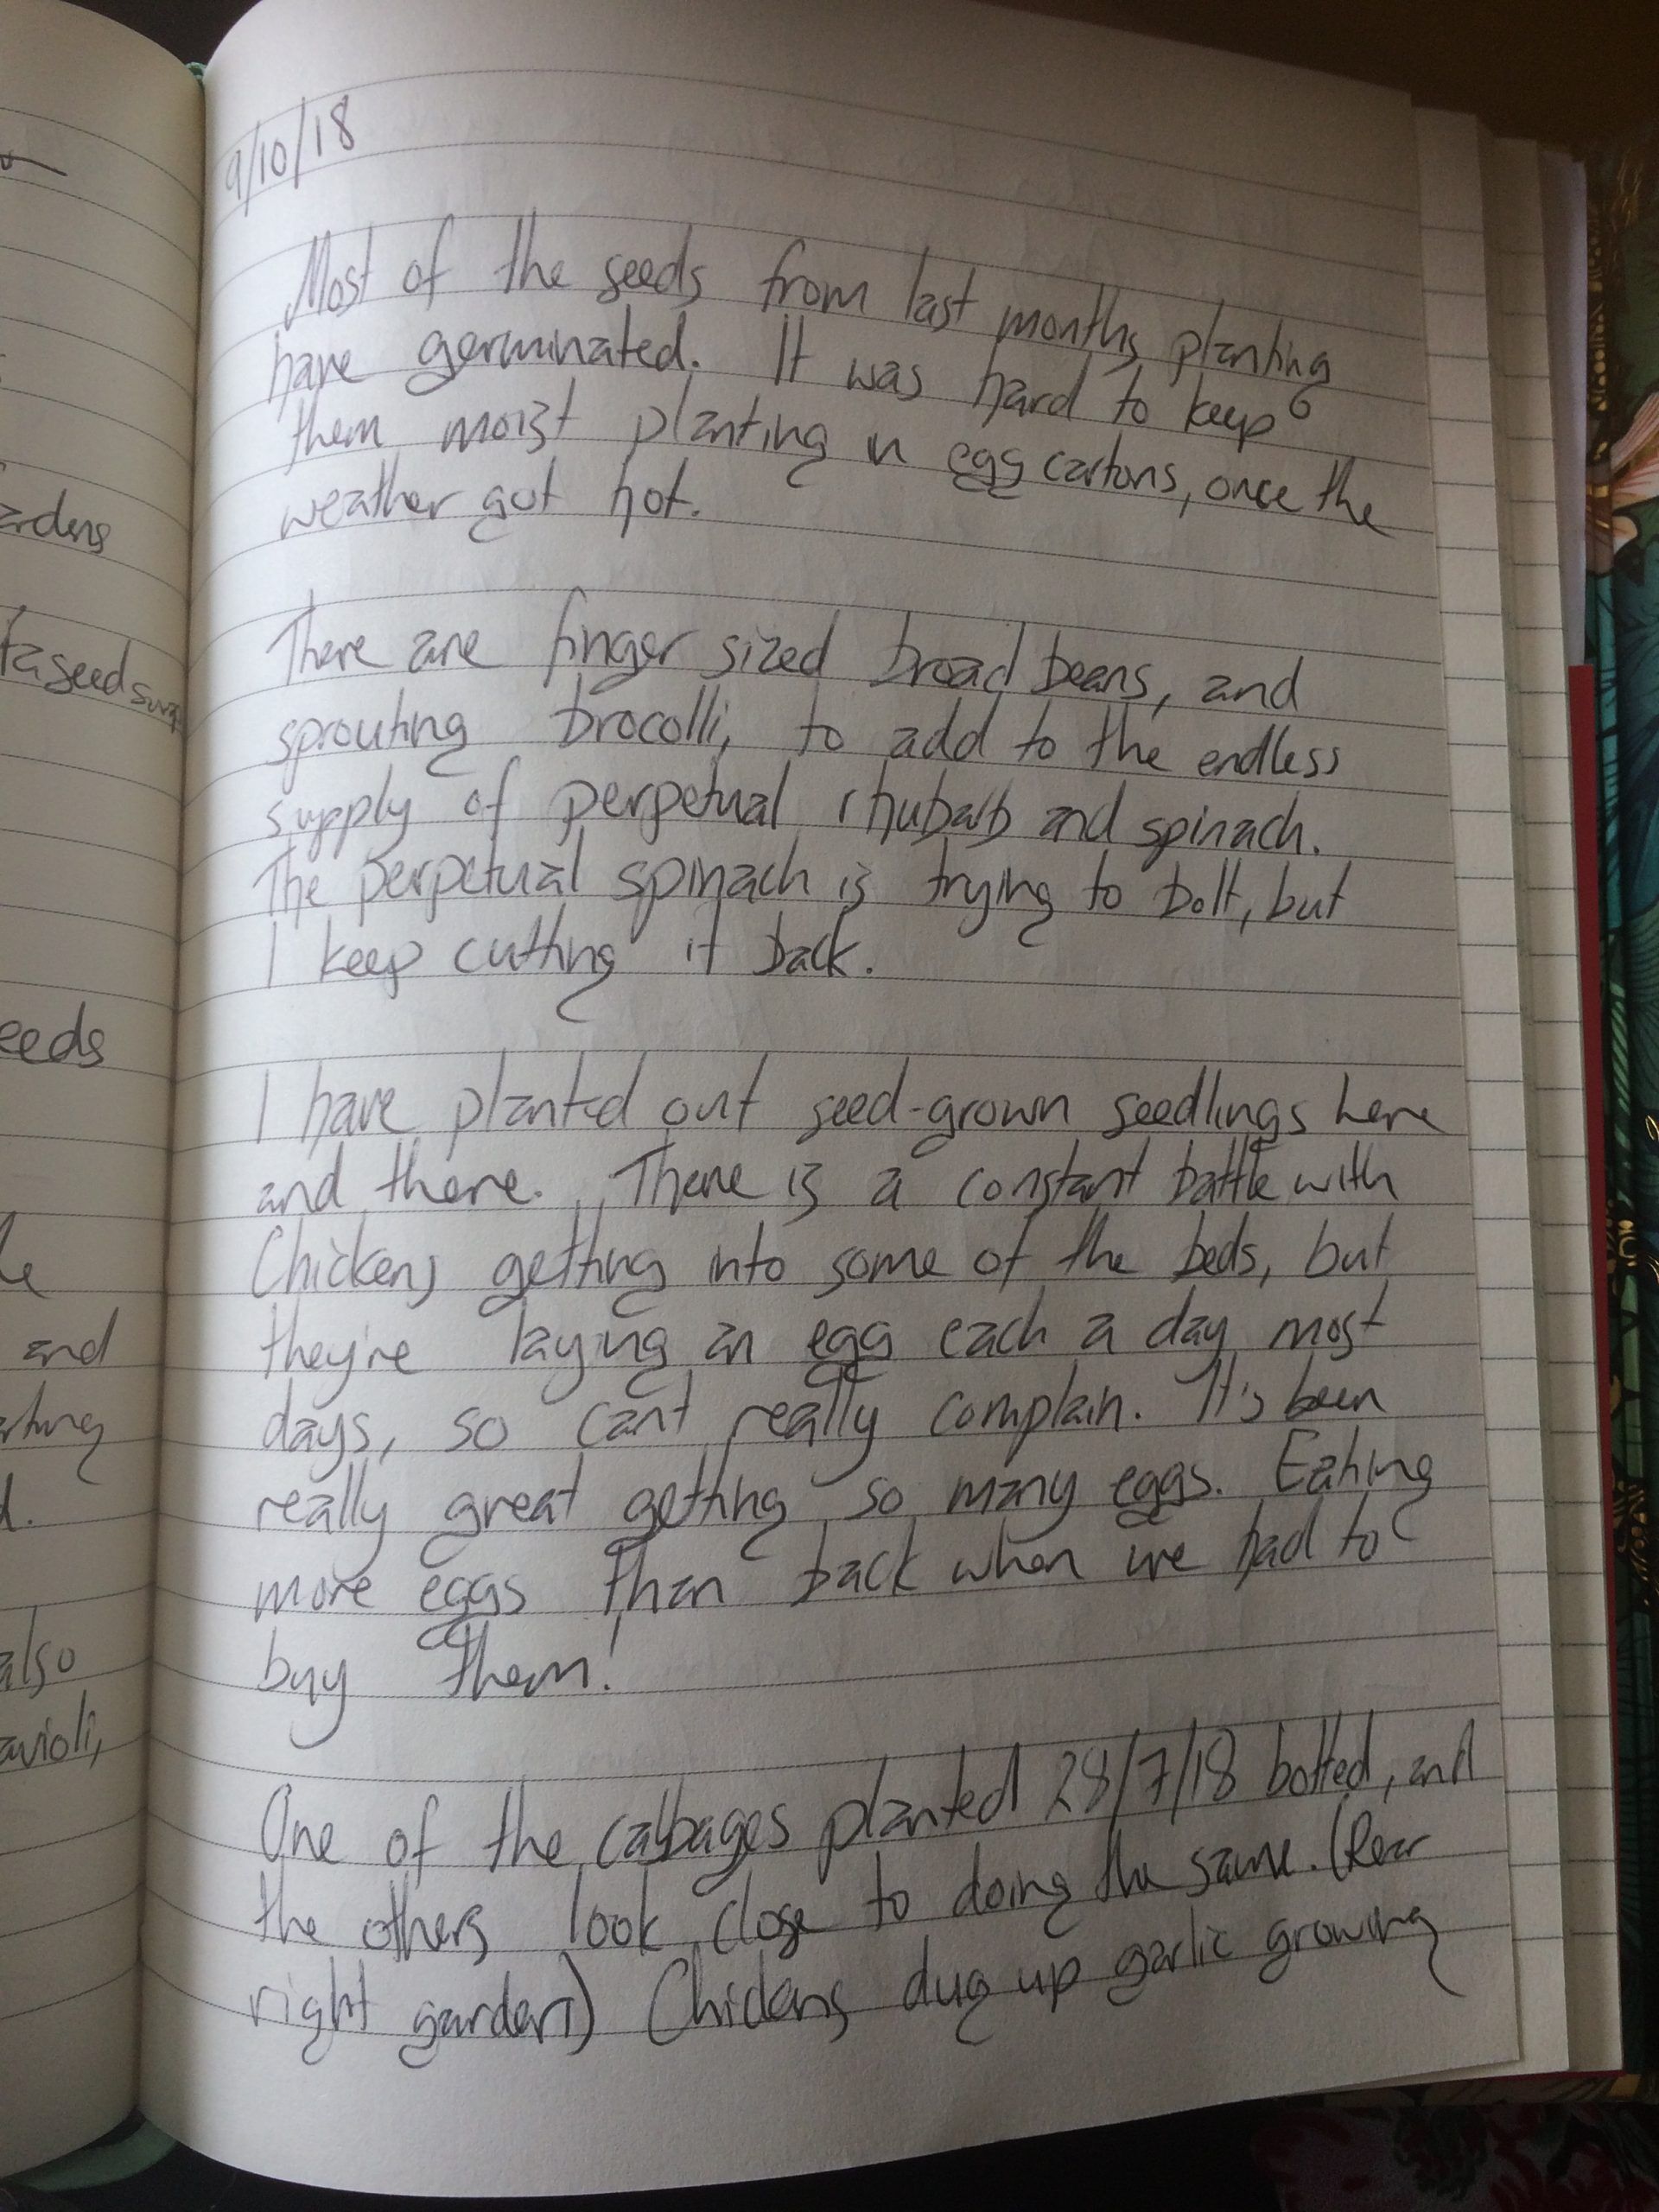 ardens
eeds
and
also
avioli,
9/10/18
Most of the seeds from last months planting
have germinated. It was hard to keep
them moist planting in egg cartons, once the
weather got hot.
There are finger sized broad beans, and
sprouting brocolli, to add to the endless
supply of perpetual rhubarb and spinach.
The perpetual spinach is trying to bolt, but
I keep cutting it back.
I have planted out seed-grown seedlings here
and there. There is a constant battle with
Chickens getting into some of the beds, but
they're laying an egg each a day most
days, so cant really complain. It's been
really great getting so many eggs. Eating
more eggs than back when we had to
buy them!
One of the cabbages planted 28/7/18 bolted, and
the others look close to doing the same. (Rear
right garden) Chickens dug up garlic growing